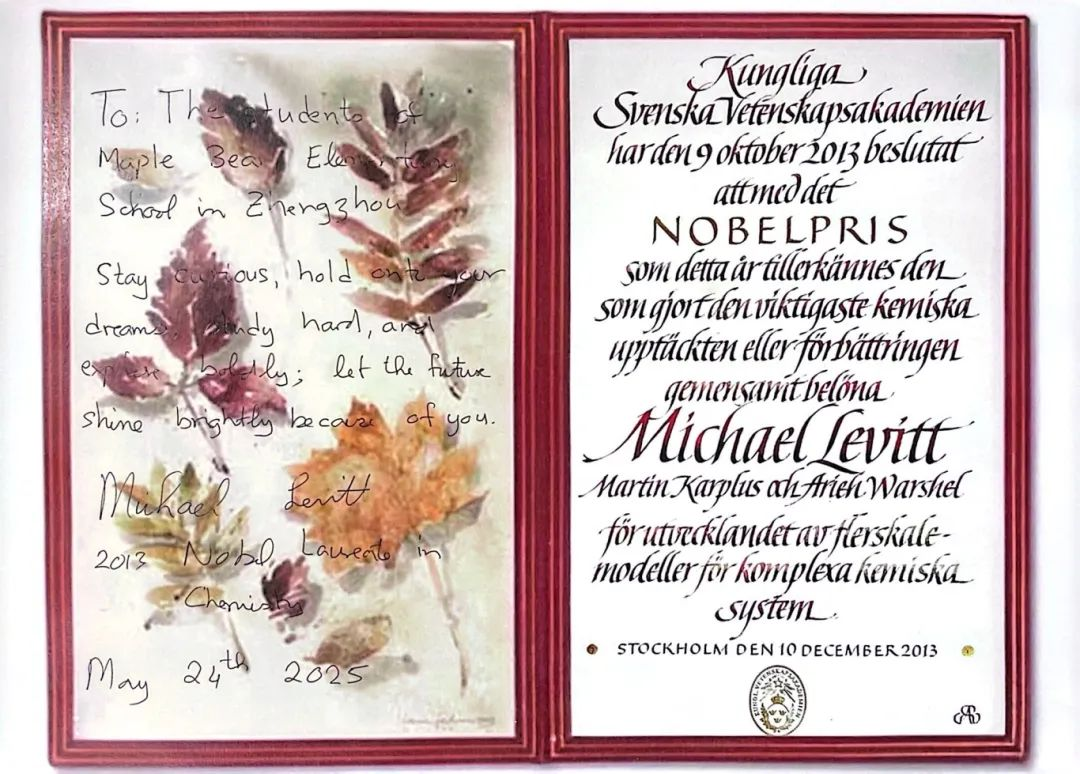 To: The students of
Maple Bear Elementary
School in Zhengzhou
Stay curious, hold onto your
dreams, study hard, and
explore boldly; let the future
shine brightly because of you.
Michael Levitt
2013 Nobel Laureate in
Chemistry
May 24th 2025
Kungliga
Svenska Vetenskapsakademien
har den 9 oktober 2013 beslutat
att med det
NOBELPRIS
som detta år tillerkännes den
som gjort den viktigaste kemiska
upptäckten eller förbättringen
gemensamt belöna
Michael Levitt
Martin Karplus och Arieh Warshel
för utvecklandet av flerskale-
modeller för komplexa kemiska
system
STOCKHOLM DEN 10 DECEMBER 2013